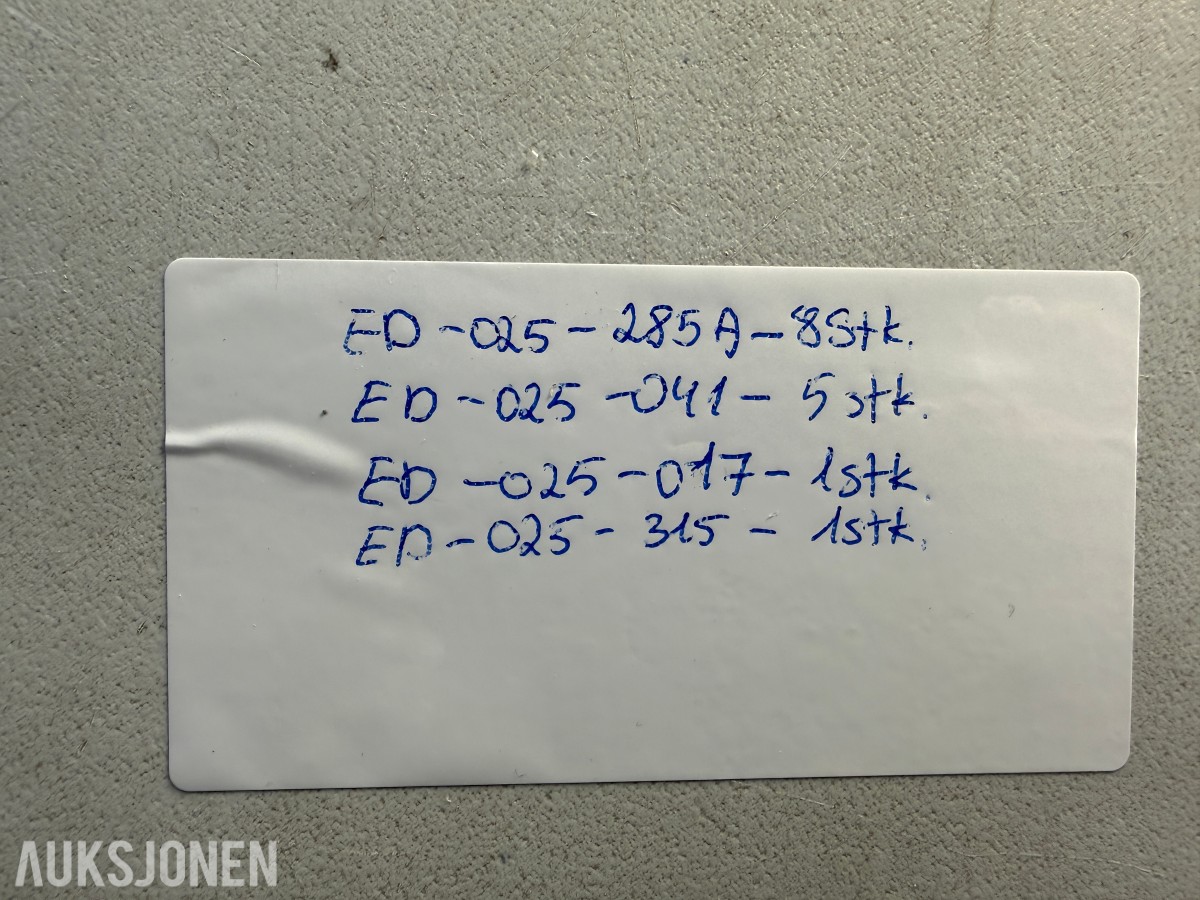 ED-025-285A-8Stk.
ED-025-041-5stk.
ED-025-017-1stk.
ED-025-315-1stk.
AUKSJONEN